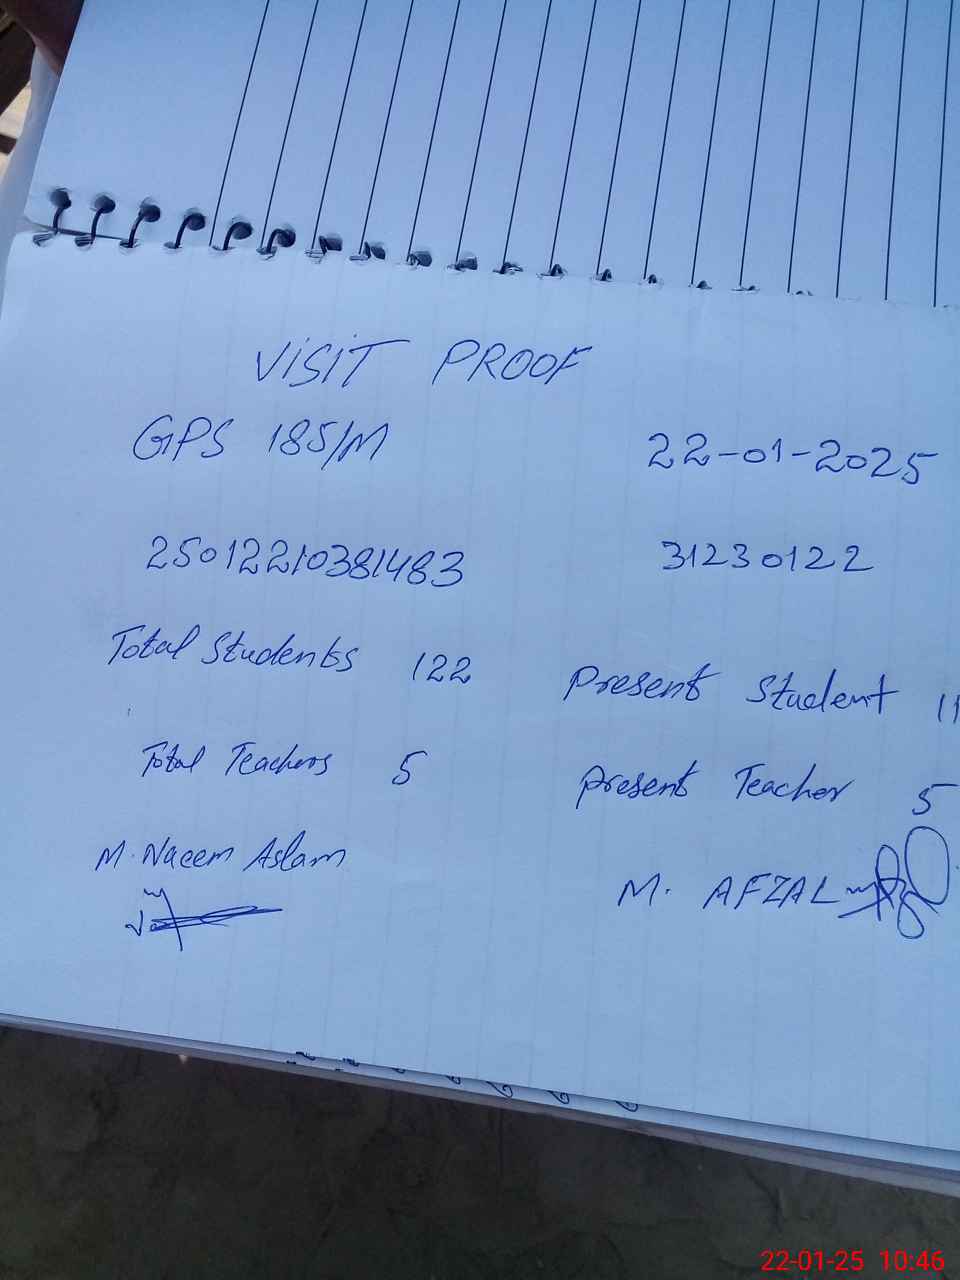 VISIT PROOF
GPS 185/M 22-01-2025
25012210381483 31230122
Total Students 122 Present Student 11
Total Teachers 5 Present Teacher 5
M. Naeem Aslam M. AFZAL
22-01-25 10:46